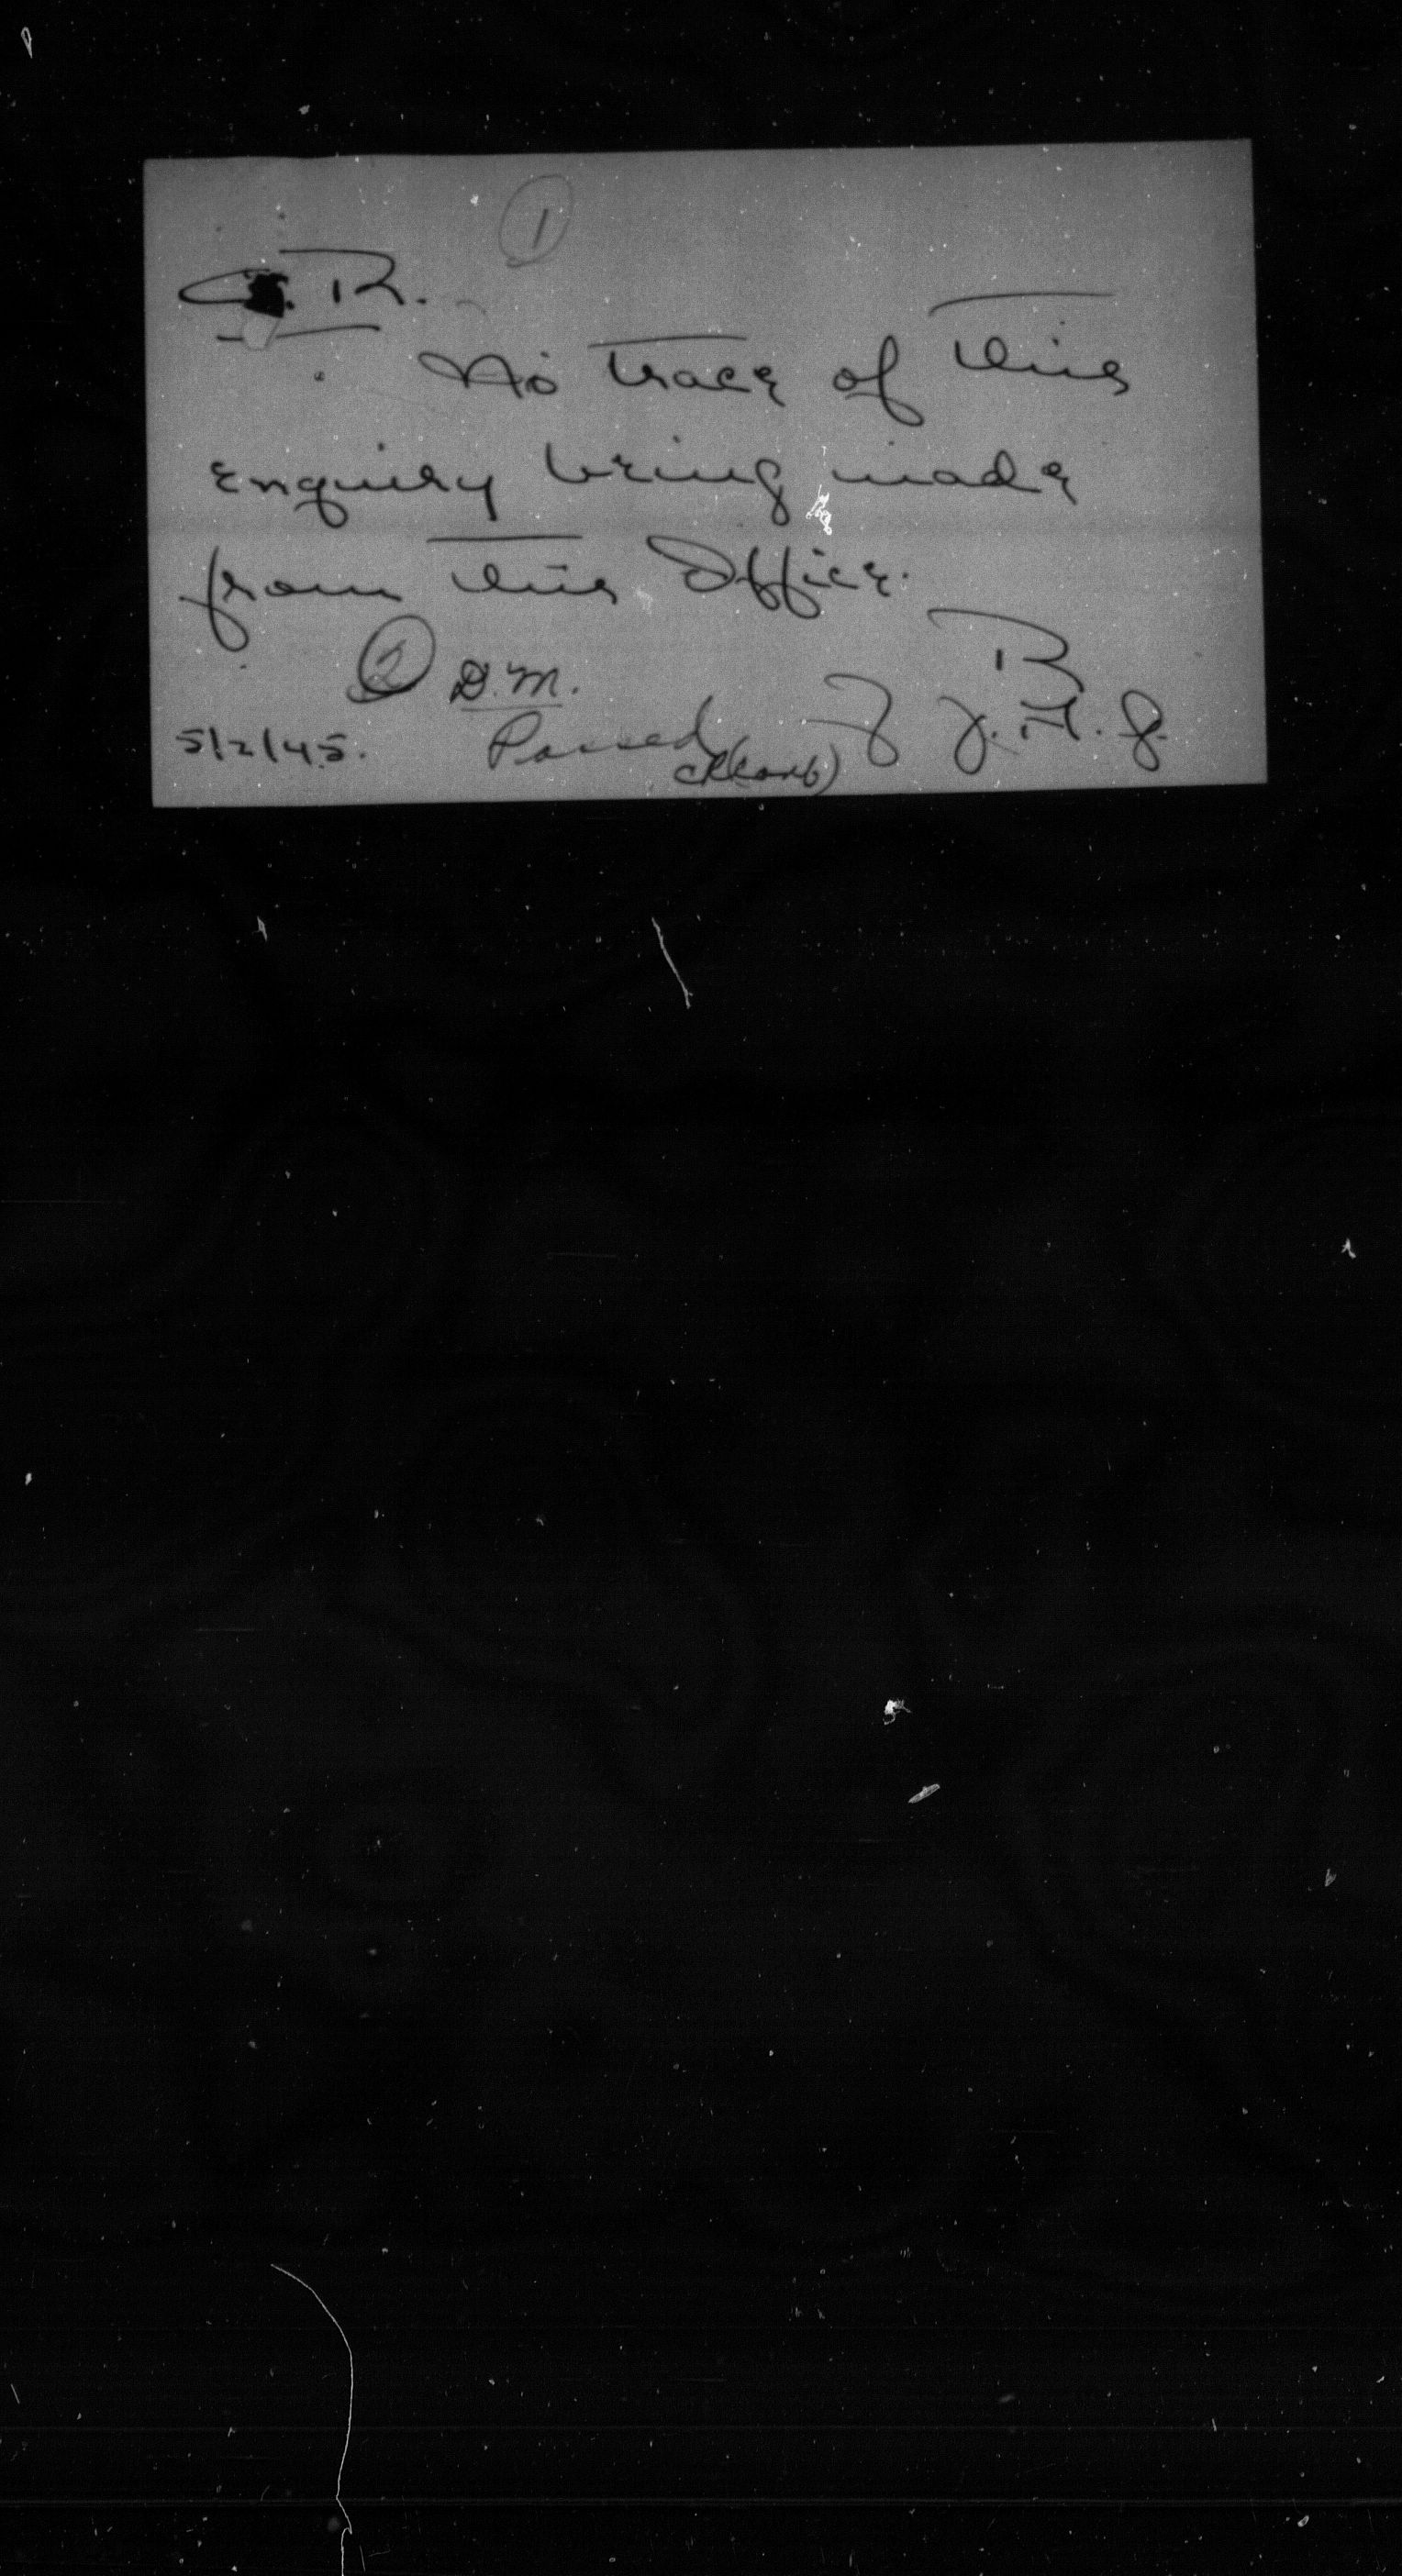 1
C.R.
No trace of this
enquiry being made
from this Office.
2 D.M.
5/2/45.
Passed